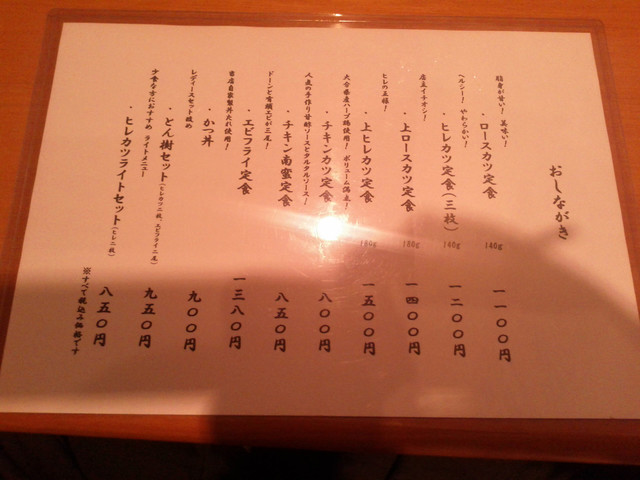 おしながき
脂身が甘い！美味い！
・ロースカツ定食 140g 一一〇〇円
ヘルシー！やわらかい！
・ヒレカツ定食(三枚) 140g 一二〇〇円
店主イチオシ！
・上ロースカツ定食 180g 一四〇〇円
ヒレの王様！
・上ヒレカツ定食 180g 一五〇〇円
大分県産ハーブ鶏使用！ボリューム満点！
・チキンカツ定食 八〇〇円
人気の手作り甘酢ソースとタルタルソース！
・チキン南蜜定食 八五〇円
ドーンと有頭エビが三尾！
・エビフライ定食 一三八〇円
当店自家製丼たれ使用！
・かつ丼 九〇〇円
レディースセット改め
・とん樹セット(ヒレカツ二枚、エビフライ二尾) 九五〇円
少食な方におすすめ ライトメニュー
・ヒレカツライトセット(ヒレ二枚) 八五〇円
※すべて税込み価格です